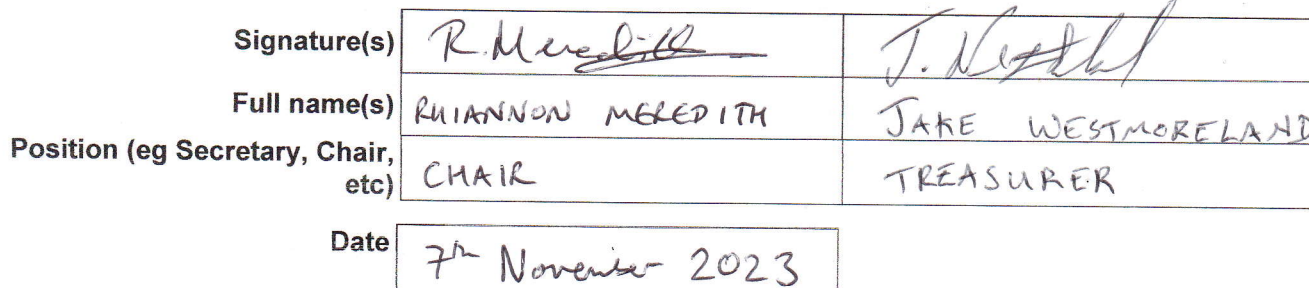 Signature(s) R. Meredith J. Westmoreland
Full name(s) RHIANNON MEREDITH JAKE WESTMORELAND
Position (eg Secretary, Chair,
etc) CHAIR TREASURER
Date 7th November 2023